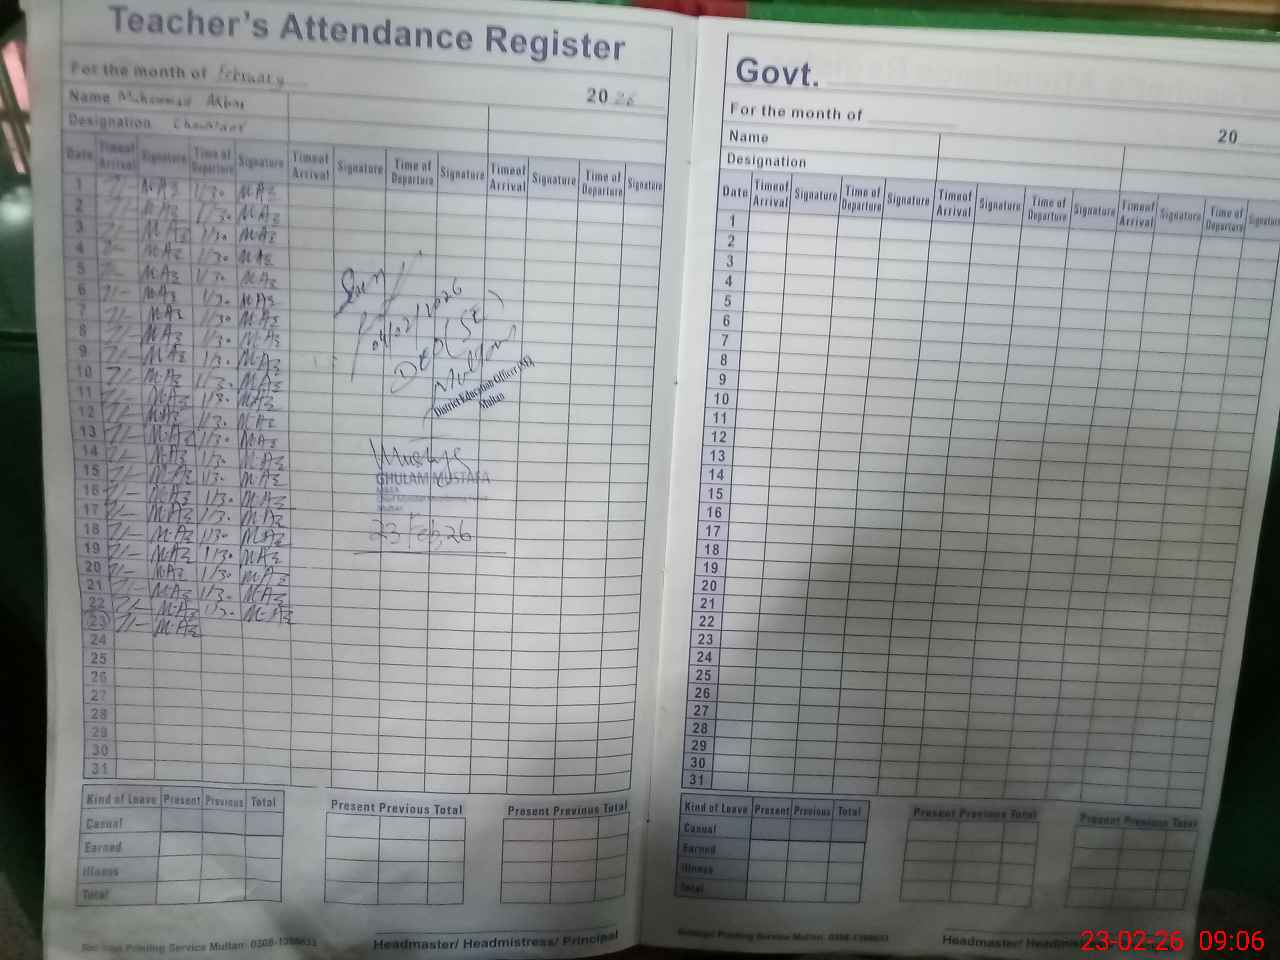 Teacher's Attendance Register
For the month of February
20 26
Name Muhammad Akbar
Designation Chowkidar
Date Time of Arrival Signature Time of Departure Signature Time of Arrival Signature Time of Departure Signature Time of Arrival Signature Time of Departure Signature
1 7/- M.Az 1/30 M.Az
2 7/- M.Az 1/30 M.Az
3 7/- M.Az 1/30 M.Az
4 7/- M.Az 1/30 M.Az
5 7/- M.Az 1/30 M.Az
6 7/- M.Az 1/30 M.Az
7 7/- M.Az 1/30 M.Az
8 7/- M.Az 1/30 M.Az
9 7/- M.Az 1/30 M.Az
10 7/- M.Az 1/30 M.Az
11 7/- M.Az 1/30 M.Az
12 7/- M.Az 1/30 M.Az
13 7/- M.Az 1/30 M.Az
14 7/- M.Az 1/30 M.Az
15 7/- M.Az 1/30 M.Az
16 7/- M.Az 1/30 M.Az
17 7/- M.Az 1/30 M.Az
18 7/- M.Az 1/30 M.Az
19 7/- M.Az 1/30 M.Az
20 7/- M.Az 1/30 M.Az
21 7/- M.Az 1/30 M.Az
22 7/- M.Az 1/30 M.Az
23 7/- M.Az
24
25
26
27
28
29
30
31
04/02/2026
DEO (SE)
Multan
District Education Officer (SE)
Multan
GHULAM MUSTAFA
23 Feb 26
Kind of Leave Present Previous Total
Present Previous Total
Present Previous Total
Casual
Earned
Illness
Total
Printing Service Multan: 0306-7398633
Headmaster/ Headmistress/ Principal
Govt.
For the month of
20
Name
Designation
Date Time of Arrival Signature Time of Departure Signature Time of Arrival Signature Time of Departure Signature Time of Arrival Signature Time of Departure Signature
1
2
3
4
5
6
7
8
9
10
11
12
13
14
15
16
17
18
19
20
21
22
23
24
25
26
27
28
29
30
31
Kind of Leave Present Previous Total
Present Previous Total
Present Previous Total
Casual
Earned
Illness
Total
Printing Service Multan: 0306-7398633
Headmaster/ Headmis
23-02-26 09:06